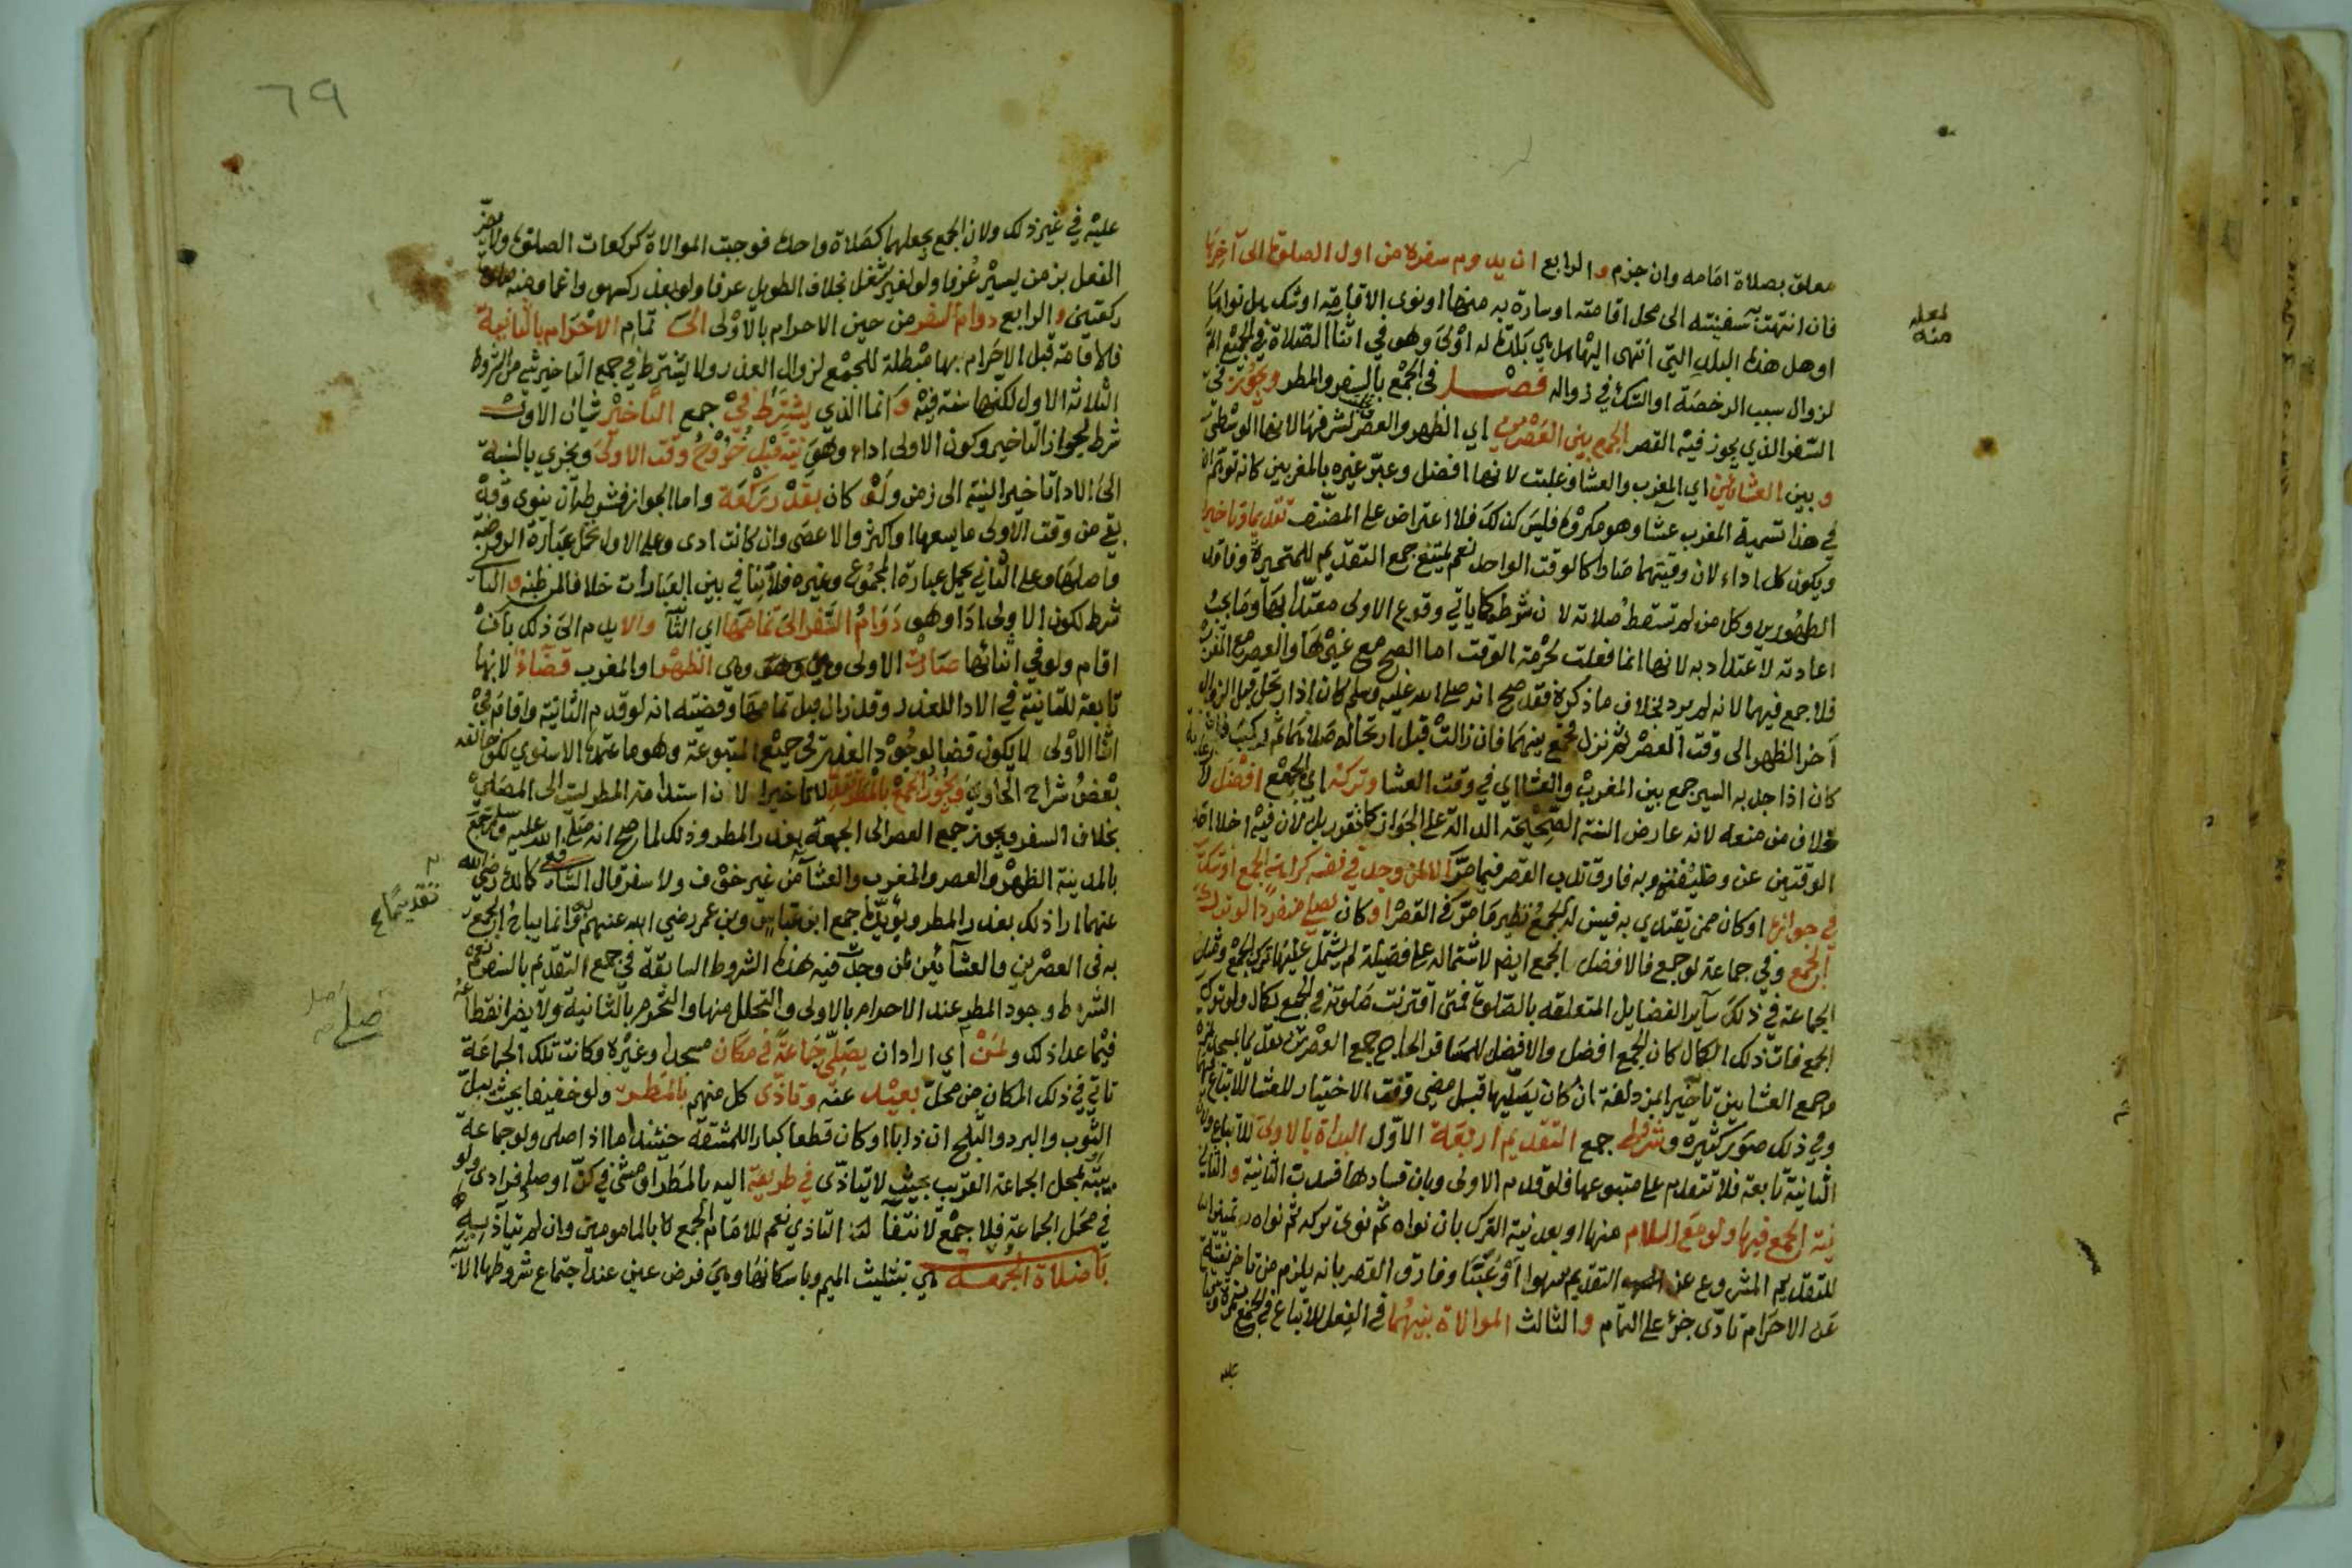 معلق بصلاة امامه وان جزم والرابع ان يدوم سفره من اول الصلوة الى آخرها
فان انتهت به سفينته الى محل اقامته او سارت به منها او نوى الاقامة او شك هل نواها
او هل هذه البلد التي انتهى اليها هل هي بلده ام لا وهو في اثنا الصلاة في الجميع اتم
لزوال سبب الرخصة او الشك في زواله فصل في الجمع بالسفر والمطر ويجوز في
السفر الذي يجوز فيه القصر الجمع بين العصرين اي الظهر والعصر لشرفها لانها الوسطى
وبين العشائين اي المغرب والعشا وغلبت لانها افضل وعبر غيره بالمغربين كانه توهم ان
في هذا تسمية المغرب عشا وهو مكروه فليس كذلك فلا اعتراض على المصنف تقديما وتاخيرا
ويكون كل اداء لان وقتيهما صارا كالوقت الواحد نعم يمتنع جمع التقديم للمتحيرة وفاقد
الطهورين وكل من لم تسقط صلاته لان شرطه كما ياتي وقوع الاولى معتدا بها وما يجب
اعادته لا اعتداد به لانها انما فعلت لحرمة الوقت اما الصبح مع غيرها والعصر مع المغرب
فلا جمع فيهما لانه لم يرد بخلاف ما ذكره فقد صح انه صلى الله عليه وسلم كان اذا ارتحل قبل الزوال
آخر الظهر الى وقت العصر ثم نزل فجمع بينهما فان زالت قبل ارتحاله صلاهما ثم ركب
كان اذا جد به السير جمع بين المغرب والعشا اي في وقت العشا وتركه اي الجمع افضل
لخلاف من منعه لانه عارض السنة الصحيحة الدالة على الجواز كما تقرر بل لان فيه اخلا احد
الوقتين عن وظيفته وبه فارق ندب القصر فيما مر الا لمن وجد في نفسه كراهة الجمع او شكت
في جوازه او كان ممن يقتدي به فيسن له الجمع نظير ما مر في القصر او كان يصلي منفردا لو ترك
الجمع وفي جماعة لو جمع فالافضل الجمع ايضا لاشتماله على فضيلة لم يشتمل عليها ترك الجمع ومثل
الجماعة في ذلك سآير الفضايل المتعلقه بالصلوة فمتى اقترنت صلوته في الجمع بكمال ولو ترك
الجمع فات ذلك الكمال كان الجمع افضل والافضل للمسافر الحاج جمع العصرين تقديما بمسجد نمرة
وجمع العشايين تاخيرا بمزدلفة ان كان يصليها قبل مضي وقت الاختيار للعشا للاتباع
وفي ذلك صور كثيرة وشروط جمع التقديم اربعة الاول البداة بالاولى للاتباع ولان
الثانية تابعة فلا تتقدم على متبوعها فلو قدم الاولى وبان فسادها فسدت الثانية والثاني
نية الجمع فيها ولو مع السلام منها او بعد نية الترك بان نواه ثم نوى تركه ثم نواه
للتقديم المشروع عن التقديم سهوا او عبثا وفارق القصر بانه يلزم من تاخر نيته
عن الاحرام تادي جزء على التمام والثالث الموالاة بينهما في الفعل للاتباع في الجمع بنمرة
عليه
لعله
منه
٦٩
عليه في غير ذلك ولان الجمع يجعلهما كصلاة واحدة فوجبت الموالاة كركعات الصلوة ولا يضر
الفصل بزمن يسير عرفا ولو لغير شغل بخلاف الطويل عرفا ولو بعذر كسهو واغما ومنه صلوة
ركعتين والرابع دوام السفر من حين الاحرام بالاولى الى تمام الاحرام بالثانية
فالاقامة قبل الاحرام بها مبطلة للجمع لزوال العذر ولا يشترط في جمع التاخير شي من الشروط
الثلاثة الاول لكنها سنة فيه وانما الذي يشترط في جمع التاخير شيان الاول
شرط لجواز التاخير وكون الاولى اداء وهو نيته قبل خروج وقت الاولى ويجزي بالنسبة
الى الادا تاخير النية الى زمن ولو كان بقدر ركعة واما الجواز فشرطه ان ينوي وقد
بقي من وقت الاولى ما يسعها او اكثر والا عصى وان كانت ادى وعلى الاول تحمل عبارة الروضة
واصلها وعلى الثاني تحمل عبارة المجموع وغيره فلا تنافي بين العبارات خلافا لمن ظنه والثا
شرط لكون الاولى ادا وهو دوام السفر الى تمامها اي الثا والا يدم الى ذلك بان
اقام ولو في اثنائها صارت الاولى وهي الظهر او المغرب قضاء لانها
تابعة للثانية في الادا للعذر وقد زال قبل تمامها وقضيته انه لو قدم الثانية واقام في
اثنا الاولى لا يكون قضا لوجود العذر في جميع المتبوعة وهو ما اعتمده الاسنوي لكن خالفه
بعض شراح الحاوي ويجوز الجمع بالمطر تقديما لا تاخيرا لان استدامة المطر ليست الى المصلي
بخلاف السفر ويجوز جمع العصر الى الجمعة بعذر المطر وذلك لما صح انه صلى الله عليه وسلم جمع
بالمدينة الظهر والعصر والمغرب والعشا من غير خوف ولا سفر قال الشافعي كمالك رضي الله
عنهما ارا ذلك بعذر المطر ويؤيده جمع ابن عباس وبن عمر رضي الله عنهم به وانما يباح الجمع
به في العصرين والعشآئين لمن وجدت فيه هذه الشروط السابقة في جمع التقديم بالسفر نعم
الشرط وجود المطر عند الاحرام بالاولى والتحلل منها والتحرم بالثانية ولا يضر انقطاعه
فيما عدا ذلك ولمن اي اراد ان يصلي جماعة في مكان مسجد او غيره وكانت تلك الجماعة
تاتي في ذلك المكان من محل بعيد عنه وتاذى كل منهم بالمطر ولو خفيفا بحيث يبل
الثوب والبرد والثلج ان ذابا او كان قطعا كبارا للمشقة حينئذ اما اذا صلى ولو جماعة
ببيته او بمحل الجماعة القريب بحيث لا يتاذى في طريقه اليه بالمطر او مشى في كن او صلى فرادى ولو
في محل الجماعة فلا جمع لانتفآ التاذي نعم للامام الجمع بالمامومين وان لم يتاذ به
باب صلاة الجمعة هي بتثليث الميم وباسكانها وهي فرض عين عند اجتماع شروطها الآتية
تقديما صح
صلى اصل